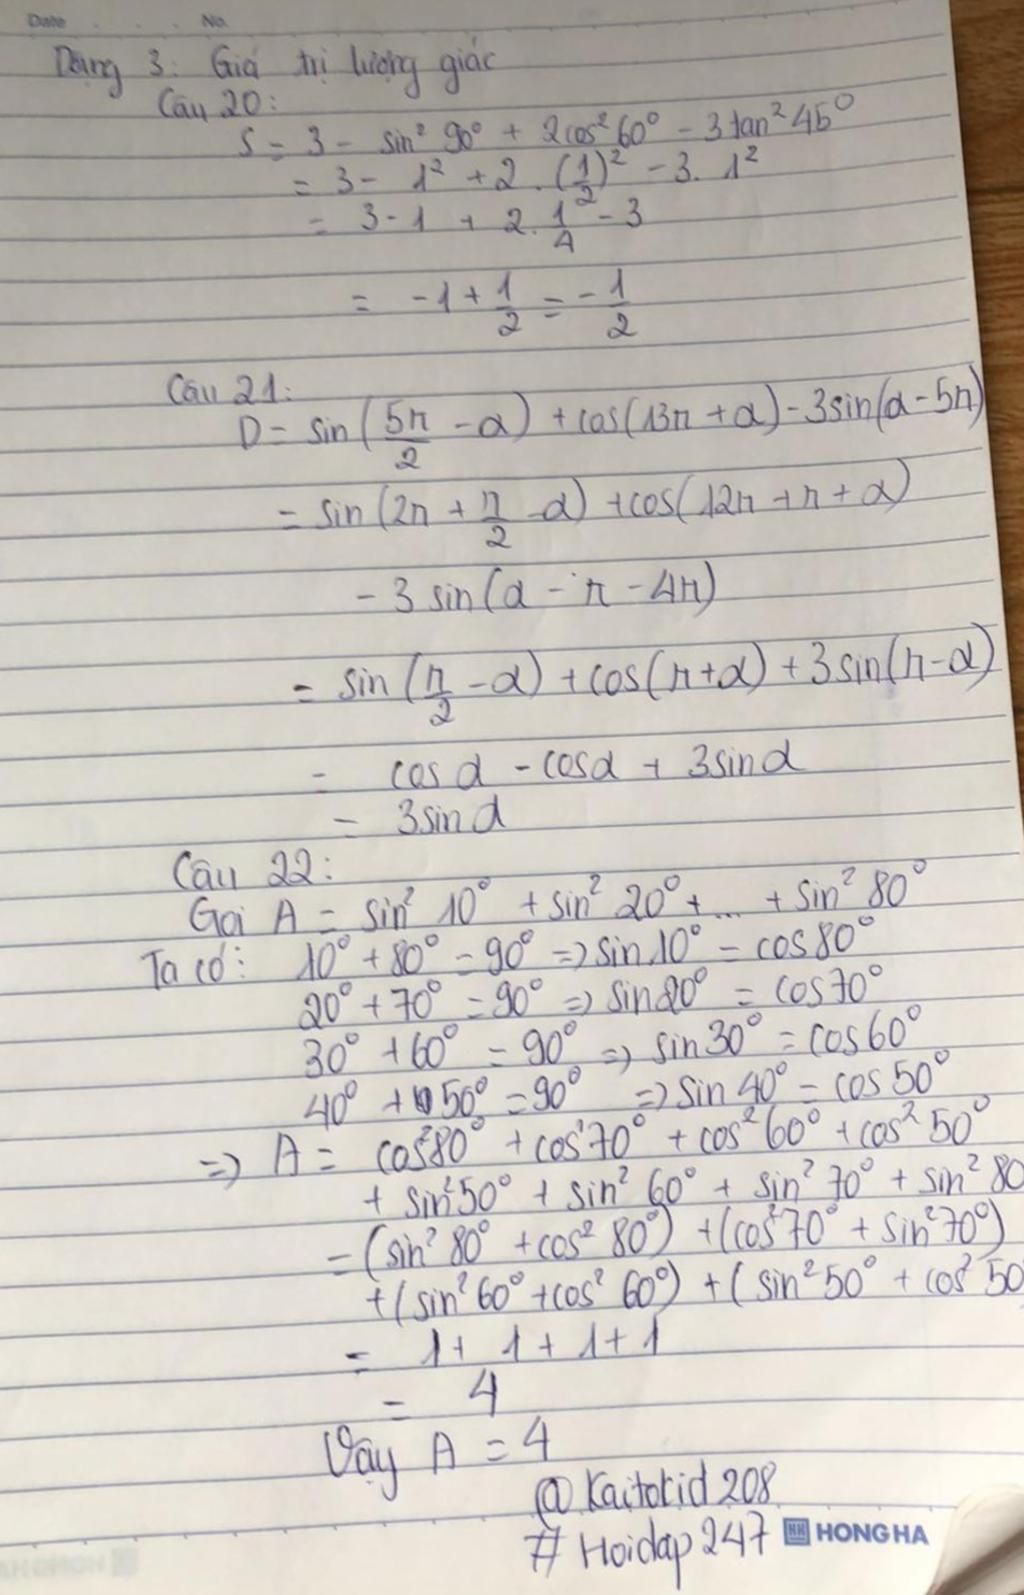 Date . . . No.
Dạng 3: Giá trị lượng giác
Câu 20:
S = 3 - sin² 90° + 2cos² 60° - 3tan² 45°
= 3 - 1² + 2 . (1/2)² - 3. 1²
= 3 - 1 + 2. 1/4 - 3
= -1 + 1/2 = -1/2
Câu 21:
D = sin(5π/2 - α) + cos(13π + α) - 3sin(α - 5π)
= sin(2π + π/2 - α) + cos(12π + π + α)
- 3 sin(α - π - 4π)
= sin(π/2 - α) + cos(π + α) + 3sin(π - α)
= cosα - cosα + 3sinα
= 3sinα
Câu 22:
Gọi A = sin² 10° + sin² 20° + ... + sin² 80°
Ta có: 10° + 80° = 90° => sin10° = cos80°
20° + 70° = 90° => sin20° = cos70°
30° + 60° = 90° => sin30° = cos60°
40° + 50° = 90° => sin40° = cos50°
=> A = cos²80° + cos²70° + cos²60° + cos²50°
+ sin²50° + sin²60° + sin²70° + sin²80
= (sin²80° + cos²80°) + (cos²70° + sin²70°)
+ (sin²60° + cos²60°) + (sin²50° + cos²50
= 1 + 1 + 1 + 1
= 4
Vậy A = 4
@Kaitokid208
# Hoidap247 HH HONG HA